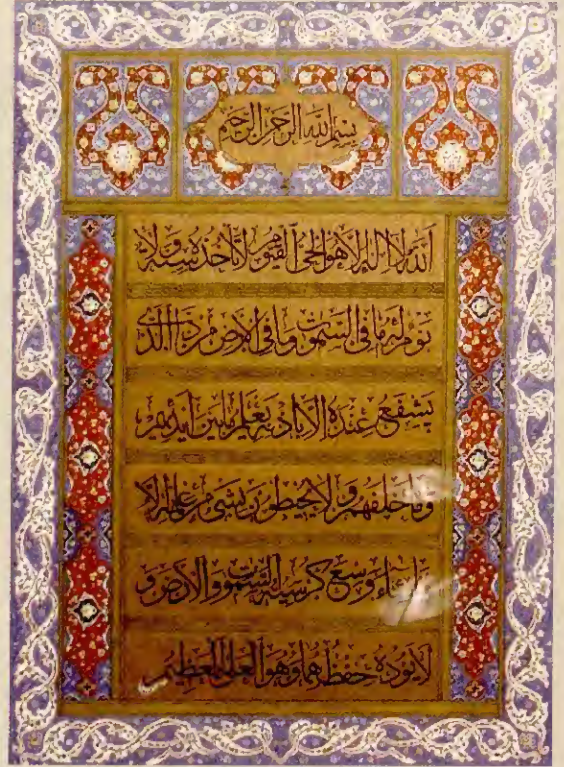 بسم الله الرحمن الرحيم
الله لا اله الا هو الحي القيوم لا تأخذه سنة ولا
نوم له ما في السموات وما في الارض من ذا الذي
يشفع عنده الا باذنه يعلم ما بين ايديهم
وما خلفهم ولا يحيطون بشيء من علمه الا
بما شاء وسع كرسيه السموات والارض و
لا يؤده حفظهما وهو العلي العظيم